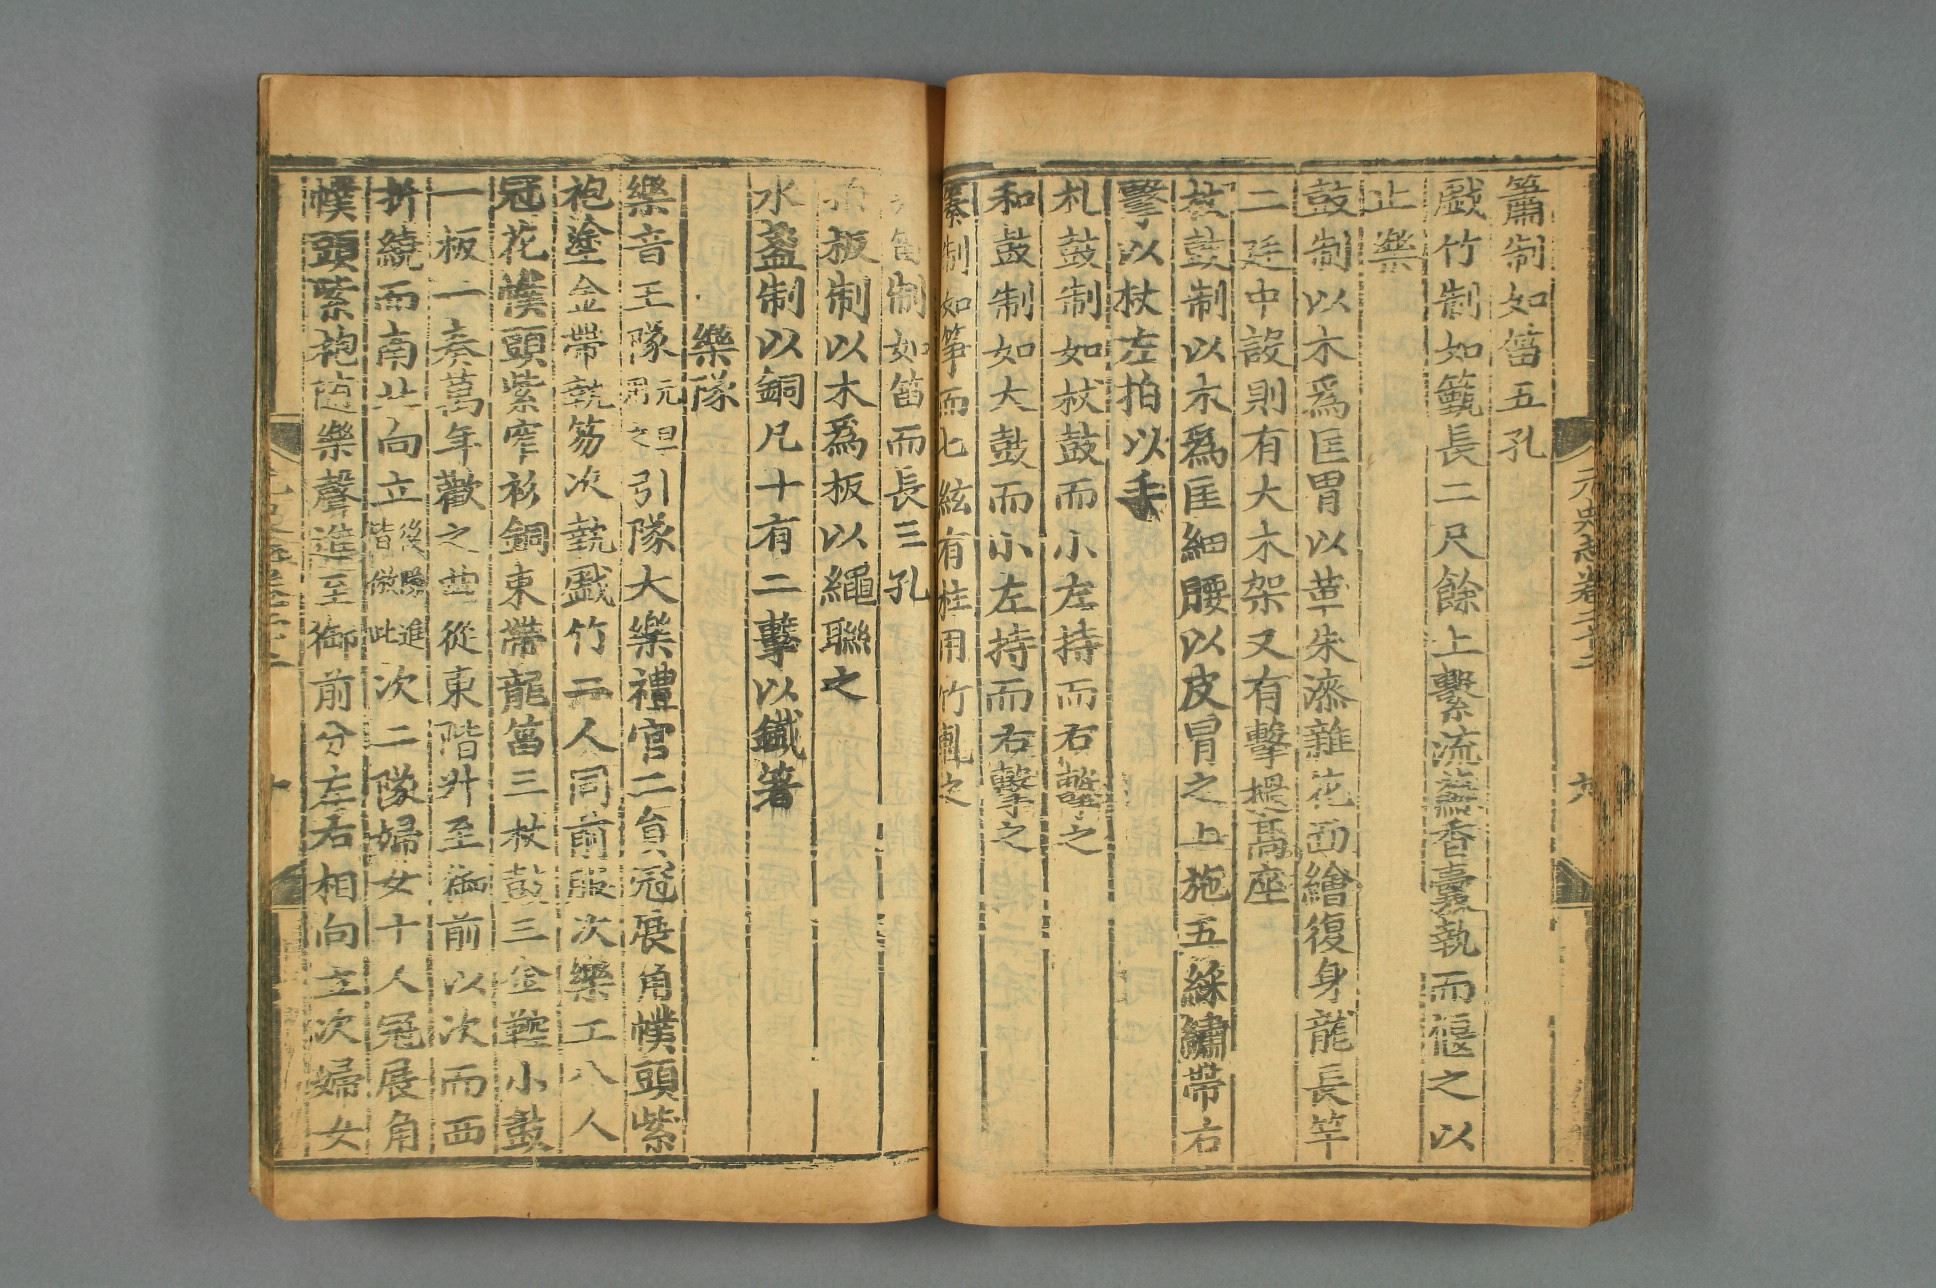 元史紀卷二十二
六
簫制如笛五孔
戲竹制如籈長二尺餘上繫流蘇香囊執而偃之以
止樂
鼓制以木爲匡冒以革朱漆雜花面繪復身龍長竿
二廷中設則有大木架又有擊撾高座
杖鼓制以木爲匡細腰以皮冒之上施五綵繡帶右
擊以杖左拍以手
札鼓制如杖鼓而小左持而右擊之
和鼓制如大鼓而小左持而右擊之
𥱧制如箏而七絃有柱用竹軋之
笛制如笛而長三孔
板制以木爲板以繩聯之
水盞制以銅凡十有二擊以鐵箸
樂隊
樂音王隊元旦用之引隊大樂禮官二員冠展角幞頭紫
袍塗金帶執笏次執戲竹二人同前服次樂工八人
冠花幞頭紫窄衫銅束帶龍笛三杖鼓三金鞚小鼓
一板一奏萬年歡之曲從東階升至御前以次而西
折繞而南北向立後隊進皆倣此次二隊婦女十人冠展角
幞頭紫袍隨樂聲進至御前分左右相向立次婦女